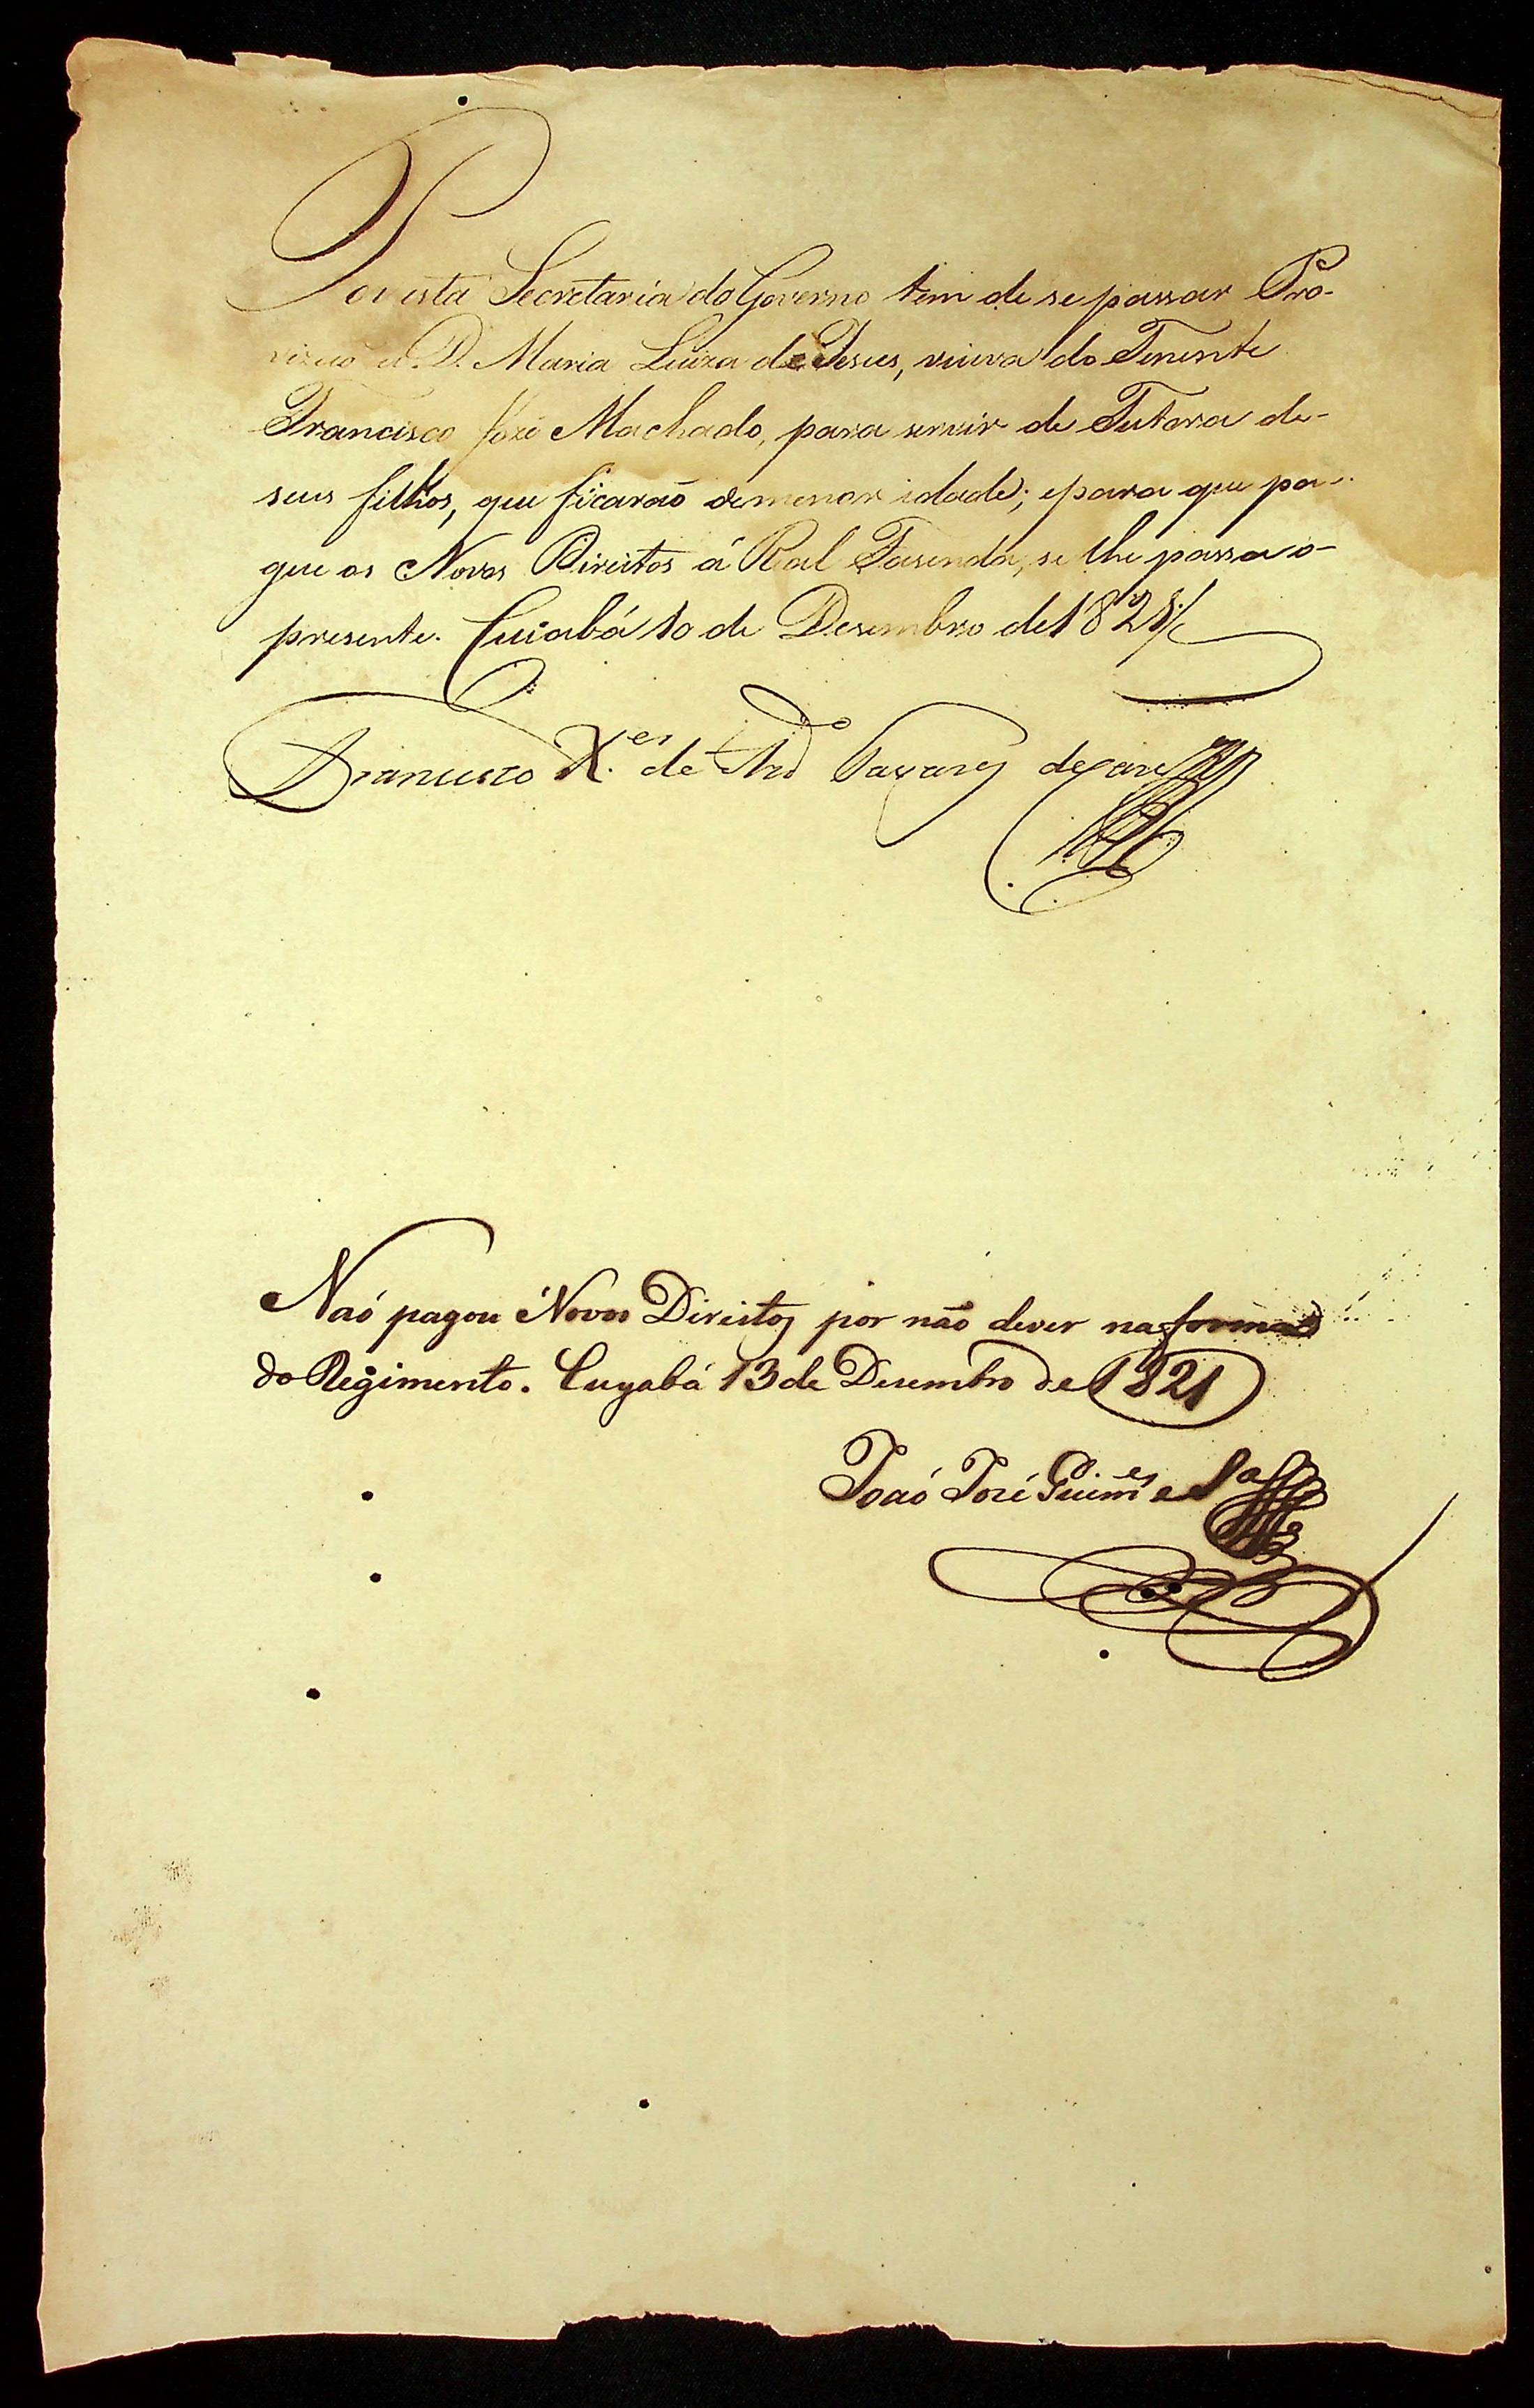 Por esta Secretaria do Governo tem de se passar Pro-
vizaõ a D. Maria Luiza de Jesus, viuva do Tenente
Francisco Jozé Machado, para servir de Tutora de-
seus filhos, que ficaraõ de menor idade; e para que pa-
gue os Novos Direitos á Real Fasenda, se lhe passa o-
presente. Cuiabá 10 de Desembro de 1821
Francisco X.er de
Naó pagou Novos Direitos por não dever na forma
do Regimento. Cuyabá 13 de Dezembro de 1821
Joaó José Guim.es e S.a